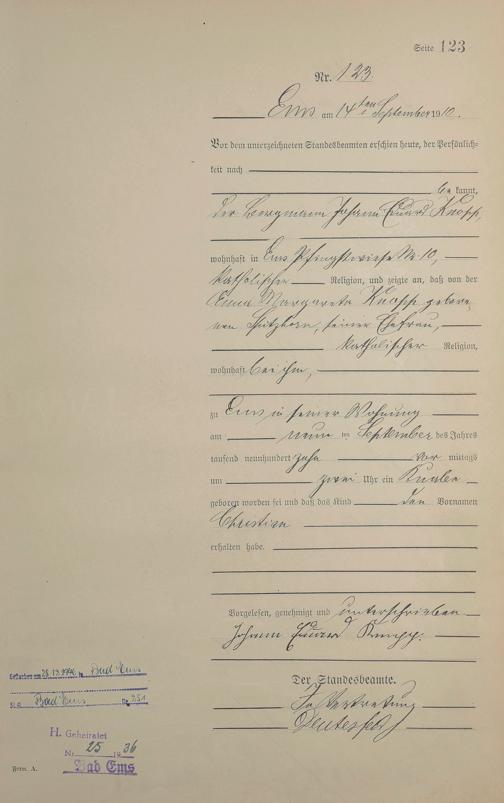 Seite 123
Nr. 123.
Ems am 14ten September 1910.
Vor dem unterzeichneten Standesbeamten erschien heute, der Persönlich=
keit nach
be kannt,
der Bergmann Johann Eduard Knopp,
wohnhaft in Ems Pfingstwiese Nr. 10,
katholischer Religion, und zeigte an, daß von der
Margareta Knopp, gebore-
nen seiner Ehefrau,
katholischer Religion,
wohnhaft bei ihm,
zu Ems in seiner Wohnung
am neun ten September des Jahres
tausend neunhundert zehn vor mittags
um zwei Uhr ein Knabe
geboren worden sei und daß das Kind den Vornamen
Christian
erhalten habe.
Vorgelesen, genehmigt und unterschrieben
Johann Eduard Knopp.
Der Standesbeamte.
In Vertretung
Gestorben am in Bad Ems
St.A. Bad Ems Nr. 251
H. Geheiratet
Nr. 25 1936
Bad Ems
Form. A.